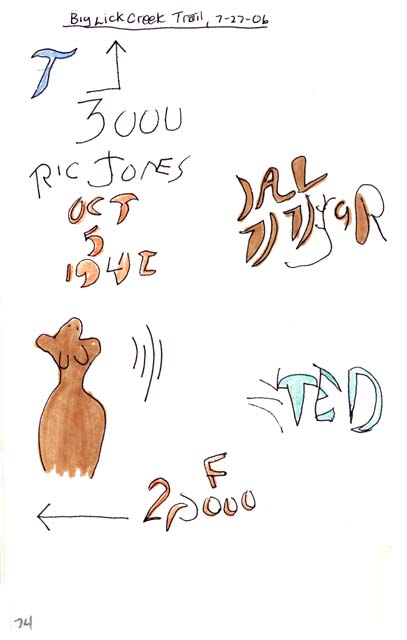 Big Lick Creek Trail, 7-27-06
T
3000
RIC JONES
OCT
5
JAL
TED
F
2,000
74